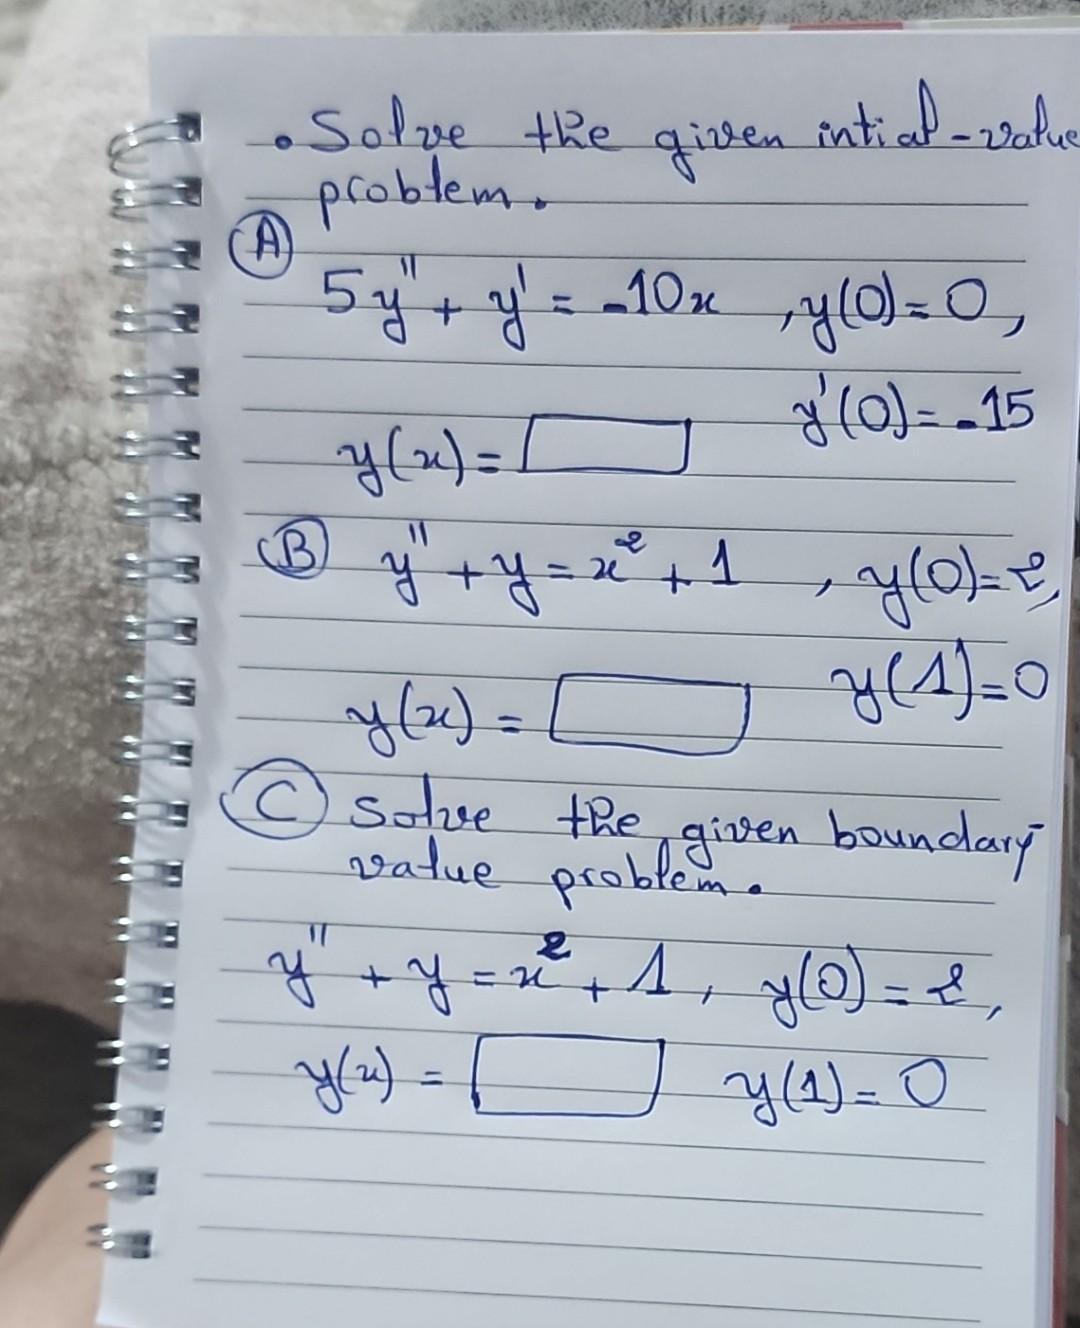 • Solve the given intial-value
problem.
(A)
5y" + y' = -10x , y(0) = 0,
y'(0) = -15
y(x) =
(B) y" + y = x² + 1 , y(0) = 2,
y(1) = 0
y(x) =
(C) Solve the given boundary
value problem.
y" + y = x² + 1, y(0) = 2,
y(x) = y(1) = 0